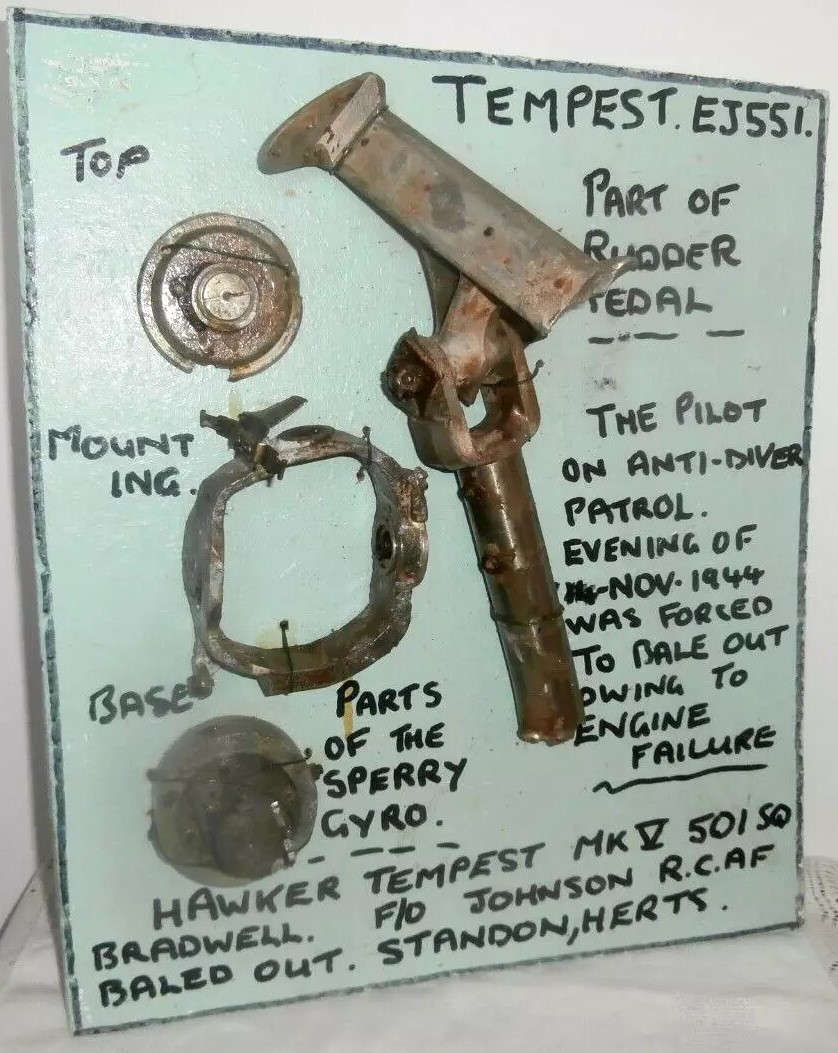 TEMPEST. EJ551.
TOP
PART OF
RUDDER
PEDAL
MOUNT
ING.
THE PILOT
ON ANTI-DIVER
PATROL.
EVENING OF
NOV. 1944
WAS FORCED
TO BALE OUT
OWING TO
ENGINE
FAILURE
BASE
PARTS
OF THE
SPERRY
GYRO.
HAWKER TEMPEST MK V 501 SQ
BRADWELL. F/O JOHNSON R.C.AF
BALED OUT. STANDON, HERTS.